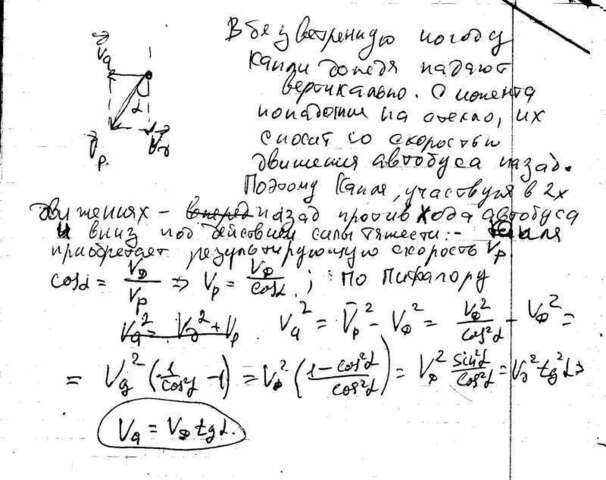 В безветренную погоду
капли дождя падают
вертикально. С момента
попадания на стекло, их
сносит со скоростью
движения автобуса назад.
Поэтому капля, участвуя в 2х
движениях - назад против хода автобуса
и вниз под действием силы тяжести: -
приобретает результирующую скорость Vр
Vа
α
Vр
Vд
cosα = Vд/Vр ⇒ Vр = Vд/cosα ; По Пифагору
Vа² = Vд² + Vр Vа² = Vр² - Vд² = Vд²/cos²α - Vд² =
= Vд² (1/cos²α - 1) = Vд² (1-cos²α/cos²α) = Vд² sin²α/cos²α = Vд² tg²α ⇒
Vа = Vд tgα.